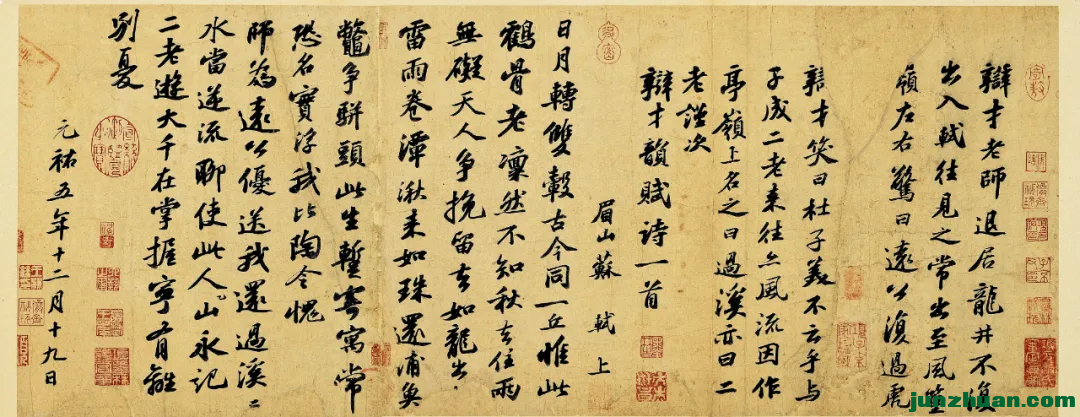 辯才老師退居龍井不復
出入軾往見之常出至風篁
嶺左右驚曰遠公復過虎
辯才笑曰杜子美不云乎與
子成二老來往亦風流因作
亭嶺上名之曰過溪亦曰二
老謹次
辯才韻賦詩一首
眉山蘇軾上
日月轉雙轂古今同一丘惟此
鶴骨老凜然不知秋去住兩
無礙天人爭挽留去如龍出
雷雨卷潭湫來如珠還浦魚
鼈爭駢頭此生蹔寄寓常
恐名實浮我比陶令愧
師為遠公優送我還過溪〻
水當逆流聊使此人山永記
二老遊大千在掌握寧有離
別憂
元祐五年十二月十九日
junzhuan.com